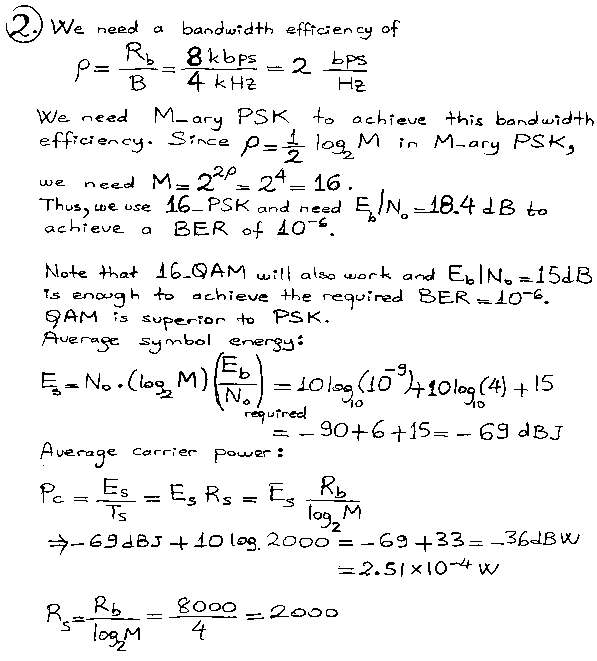 2. We need a bandwidth efficiency of
ρ = R_b/B = 8 kbps/4 kHz = 2 bps/Hz
We need M-ary PSK to achieve this bandwidth
efficiency. Since ρ = 1/2 log₂ M in M-ary PSK,
we need M = 2^(2ρ) = 2⁴ = 16.
Thus, we use 16-PSK and need E_b/N₀ = 18.4 dB to
achieve a BER of 10⁻⁶.
Note that 16-QAM will also work and E_b|N₀ = 15dB
is enough to achieve the required BER = 10⁻⁶.
QAM is superior to PSK.
Average symbol energy:
E_s = N₀ · (log₂ M) (E_b/N₀)_required = 10 log₁₀(10⁻⁹) + 10 log₁₀(4) + 15
= -90 + 6 + 15 = -69 dBJ
Average carrier power:
P_c = E_s/T_s = E_s R_s = E_s R_b/log₂ M
⇒ -69 dBJ + 10 log. 2000 = -69 + 33 = -36 dBW
= 2.51 × 10⁻⁴ W
R_s = R_b/log₂ M = 8000/4 = 2000